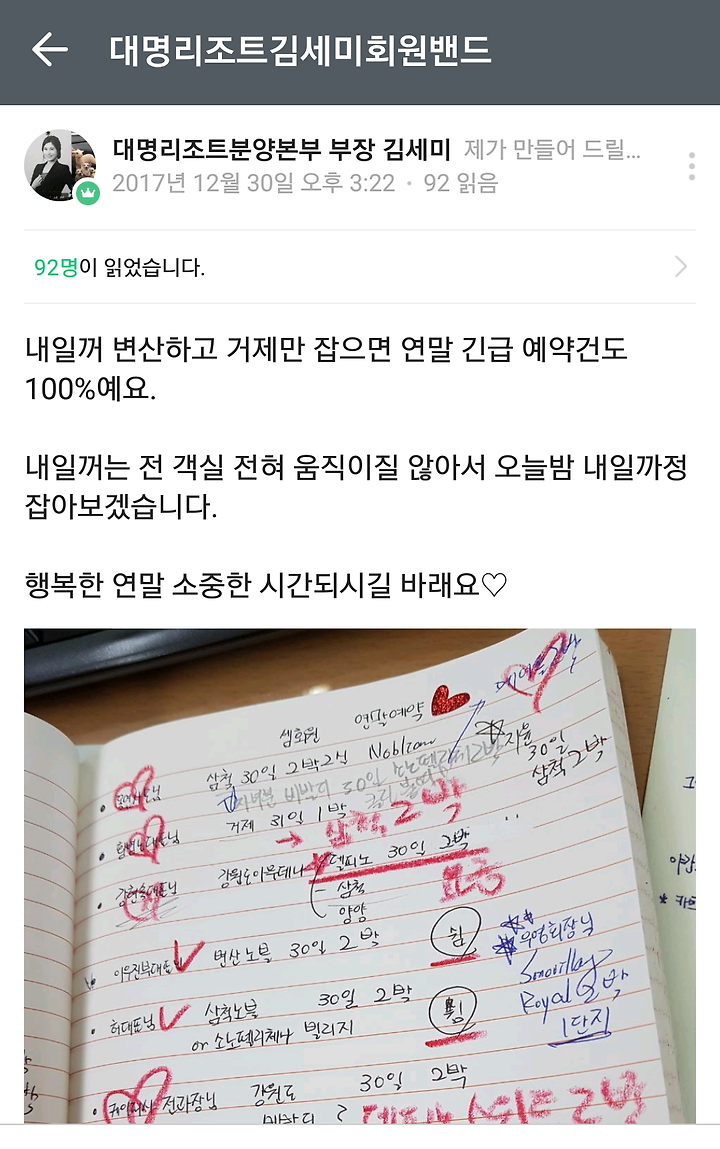 대명리조트김세미회원밴드
대명리조트분양본부 부장 김세미 제가 만들어 드릴...
2017년 12월 30일 오후 3:22 · 92 읽음
92명이 읽었습니다.
내일꺼 변산하고 거제만 잡으면 연말 긴급 예약건도
100%예요.
내일꺼는 전 객실 전혀 움직이질 않아서 오늘밤 내일까정
잡아보겠습니다.
행복한 연말 소중한 시간되시길 바래요♡
연말예약
삼척 30일 2박2실 Noblian
30일
삼척 2박
거제 31일 1박
→ 삼척 2박
델피노 30일 2박
삼척
양양
변산노블 30일 2박
쉼
허대표님 삼척노블 30일 2박
or 소노펠리체나 빌리지
Royal 2박
1단지
전과장님 강원도 30일 2박
2박